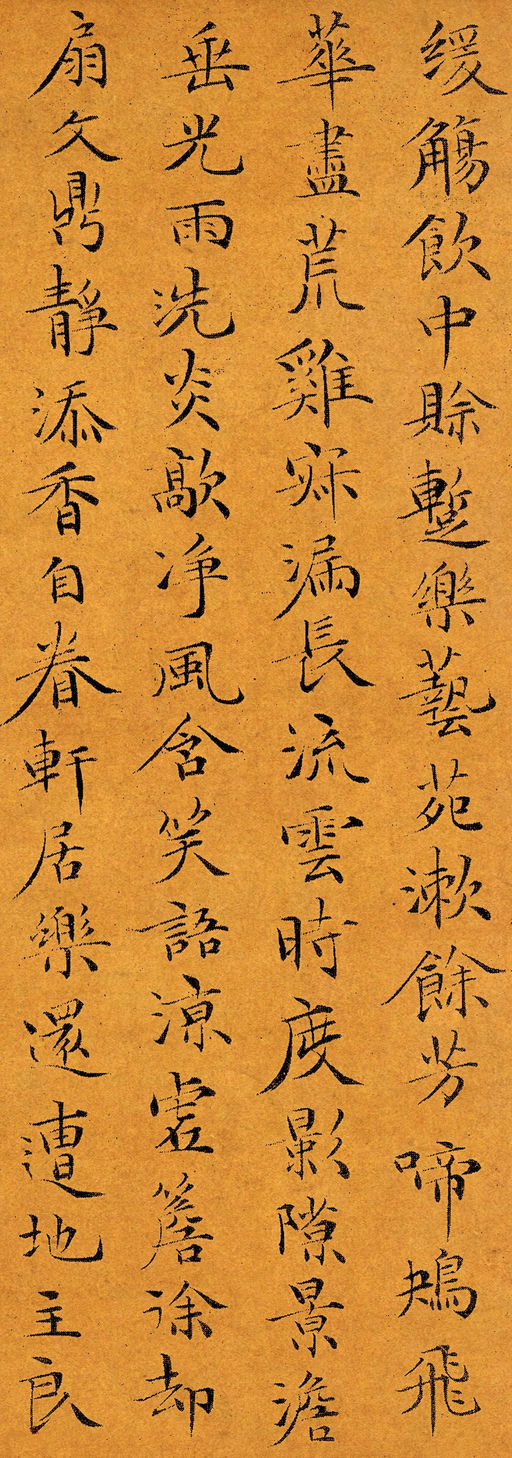 缓觴飲中賒蹔樂藝苑漱餘芳啼鴂飛
華盡荒雞寐漏長流雲時度影隙景澹
垂光雨洗炎歊净風含笑語涼虚簷徐却
扇文鼎靜添香自眷軒居樂還遭地主良